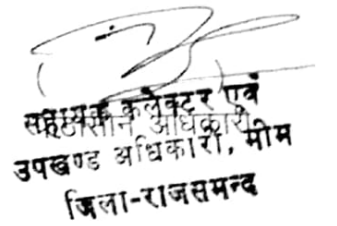 सहायक कलेक्टर एवं
अधिकारी
उपखण्ड अधिकारी, भीम
जिला-राजसमन्द